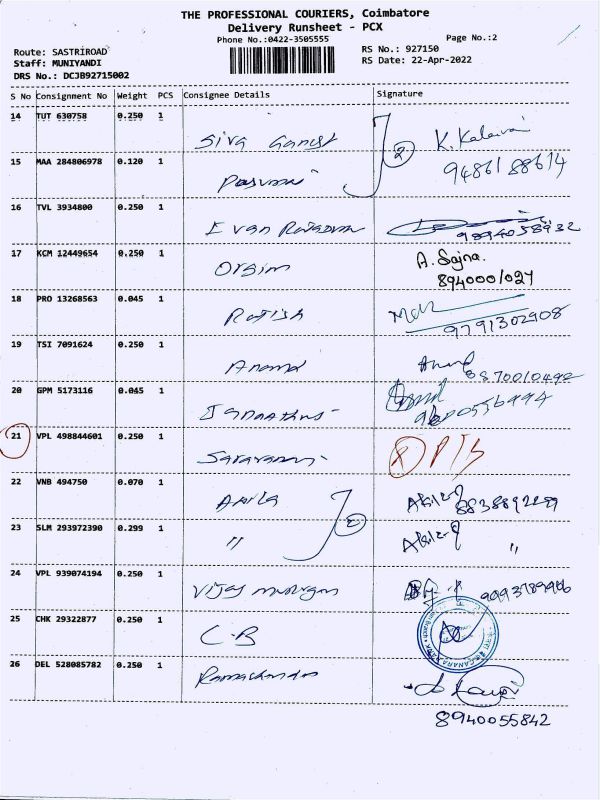 THE PROFESSIONAL COURIERS, Coimbatore
Delivery Runsheet - PCX
Phone No.:0422-3505555
Page No.:2
Route: SASTRIROAD
RS No.: 927150
Staff: MUNIYANDI
RS Date: 22-Apr-2022
DRS No.: DCJB92715002
S No Consignment No Weight PCS Consignee Details Signature
14 TUT 630758 0.250 1 Siva Ganesh 2 K. Kalaivani
15 MAA 284806978 0.120 1 9486188614
16 TVL 3934800 0.250 1 Evan 9894058932
17 KCM 12449654 0.250 1 Origin A. Sajna.
8940001027
18 PRO 13268563 0.045 1 Ratish
9791302908
19 TSI 7091624 0.250 1 Anand Anand
8870010492
20 GPM 5173116 0.045 1
21 VPL 498844601 0.250 1 Saravanan
22 VNB 494750 0.070 1 Akila 2
23 SLM 293972390 0.299 1 " "
24 VPL 939074194 0.250 1 Vijay Murugan
25 CHK 29322877 0.250 1 C-B
CANARA BANK
26 DEL 528085782 0.250 1 Ramachandran
8940055842